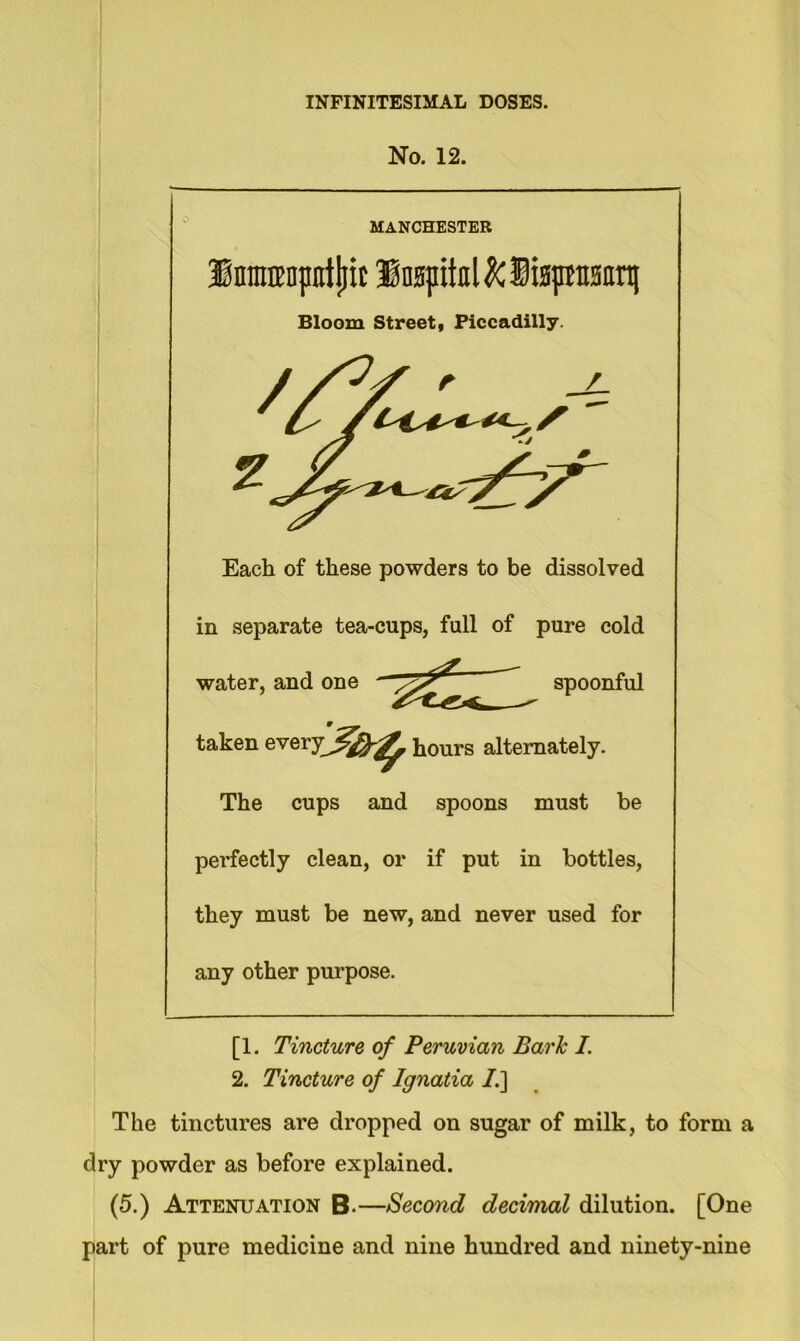 INFINITESIMAL DOSES.
No. 12.
MANCHESTER
Homœopathic Hospital & Dispensary
Bloom Street, Piccadilly.
1
2
Each of these powders to be dissolved
in separate tea-cups, full of pure cold
water, and one spoonful
taken every hours alternately.
The cups and spoons must be
perfectly clean, or if put in bottles,
they must be new, and never used for
any other purpose.
[1. Tincture of Peruvian Bark I.
2. Tincture of Ignatia I.]
The tinctures are dropped on sugar of milk, to form a
dry powder as before explained.
(5.) ATTENUATION B.—Second decimal dilution. [One
part of pure medicine and nine hundred and ninety-nine